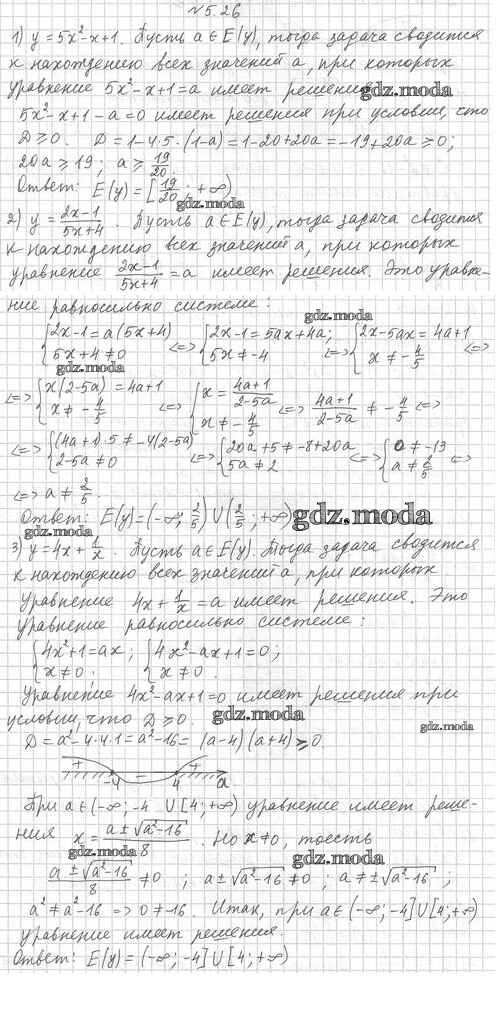 №5.26
1) y = 5x²-x+1. Пусть a∈E(y), тогда задача сводится
к нахождению всех значений a, при которых
уравнение 5x²-x+1=a имеет решения.
gdz.moda
5x²-x+1-a=0 имеет решения при условии, что
D≥0. D=1-4·5·(1-a)=1-20+20a=-19+20a≥0;
20a≥19; a≥19/20.
Ответ: E(y)=[19/20; +∞)
gdz.moda
2) y = (2x-1)/(5x+4). Пусть a∈E(y), тогда задача сводится
к нахождению всех значений a, при которых
уравнение (2x-1)/(5x+4)=a имеет решения. Это уравне-
ние равносильно системе:
gdz.moda
{2x-1=a(5x+4) {2x-1=5ax+4a; {2x-5ax=4a+1
5x+4≠0 <=> 5x≠-4 <=> x≠-4/5 <=>
gdz.moda
<=> {x(2-5a)=4a+1 x≠-4/5 <=> {x=(4a+1)/(2-5a) x≠-4/5 <=> (4a+1)/(2-5a)≠-4/5 <=>
<=> {(4a+1)·5≠-4(2-5a) {20a+5≠-8+20a {0≠-13
2-5a≠0 <=> 5a≠2 <=> a≠2/5 <=>
<=> a≠2/5.
Ответ: E(y)=(-∞; 2/5)∪(2/5; +∞)
gdz.moda
gdz.moda
3) y=4x+1/x. Пусть a∈E(y). Тогда задача сводится
к нахождению всех значений a, при которых
уравнение 4x+1/x=a имеет решения. Это
уравнение равносильно системе:
{4x²+1=ax; {4x²-ax+1=0;
x≠0; x≠0.
Уравнение 4x²-ax+1=0 имеет решения при
условии, что D≥0.
gdz.moda
gdz.moda
D=a²-4·4·1=a²-16=(a-4)(a+4)≥0.
+ -4 - 4 + a
При a∈(-∞; -4 ∪[4; +∞) уравнение имеет реше-
ния x=(a±√a²-16)/8. Но x≠0, то есть
gdz.moda
gdz.moda
(a±√a²-16)/8≠0; a±√a²-16≠0; a≠±√a²-16;
a²≠a²-16 => 0≠-16. Итак, при a∈(-∞; -4]∪[4; +∞)
уравнение имеет решения.
Ответ: E(y)=(-∞; -4]∪[4; +∞)